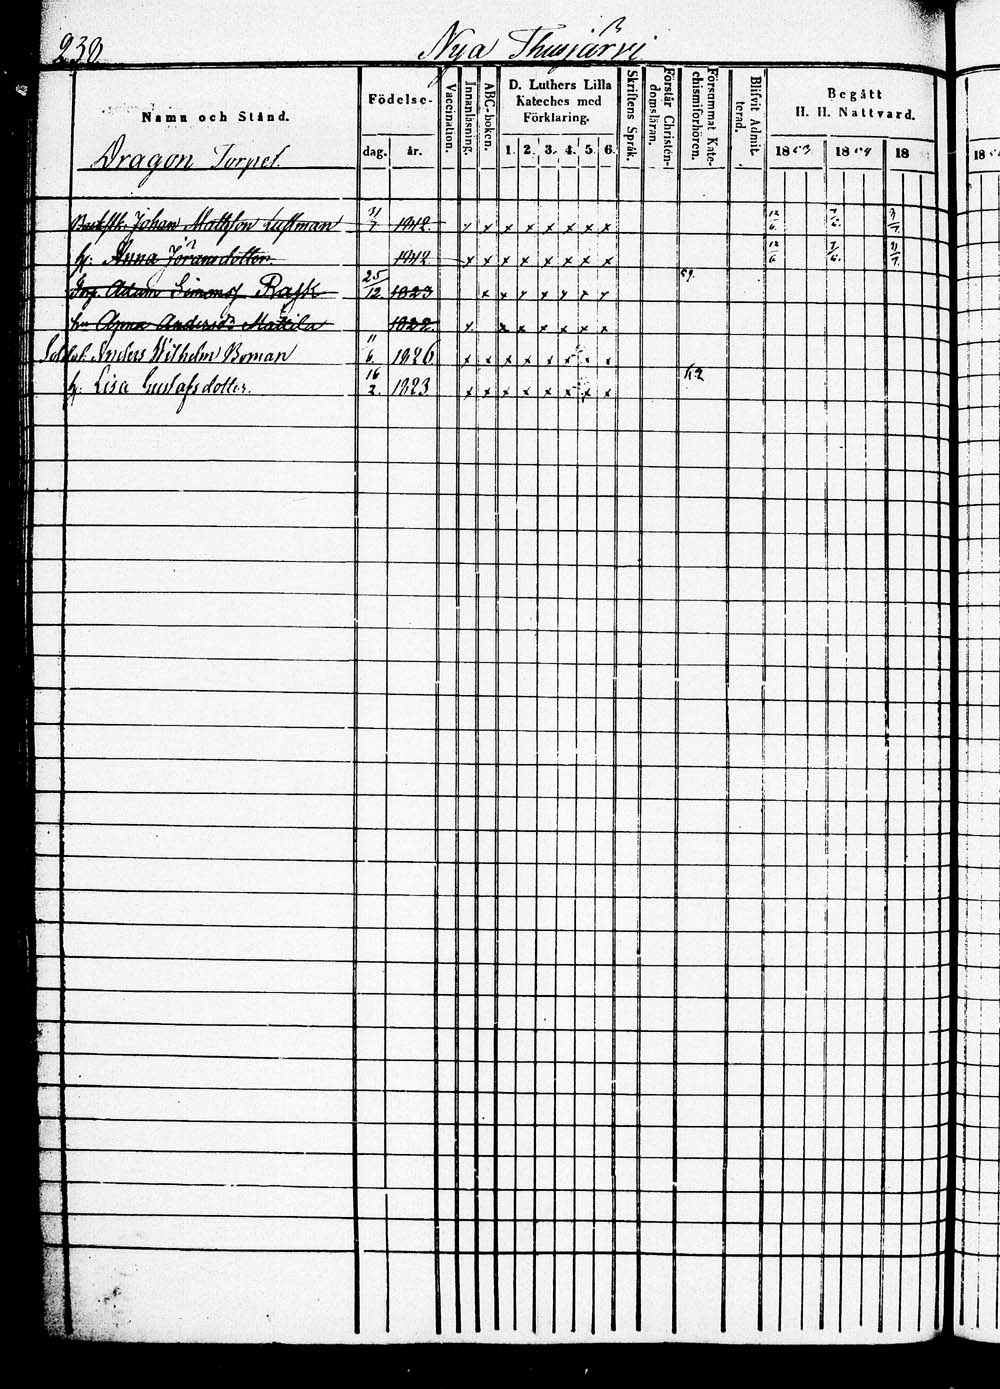 238. Nya Thusjärvi
Namn och Stånd.
Födelse-
dag. år.
Vaccination.
Innanläsning.
ABC-boken.
D. Luthers Lilla
Kateches med
Förklaring.
1. 2. 3. 4. 5. 6.
Skriftens Språk.
Förstår Christen-
domsläran.
Försummat Kate-
chismiförhören.
Blifvit Admit-
terad.
Begått
H. H. Nattvard.
1853 1854 18
18
Dragon Torpet.
Johan Mattsson x x x x x x x x 12/6
h: Anna Jöransdotter x x x x x x x x 12/6
Adam Simonss Rask 25/12. 1823 x x x x x x x 59.
Anna Andersdr Mattila 1822. x x x x x x x
Anders Wilhelm Boman 11/6. 1826 x x x x x x x x
h: Lisa Gustafsdotter. 16/2. 1823 x x x x x x x x